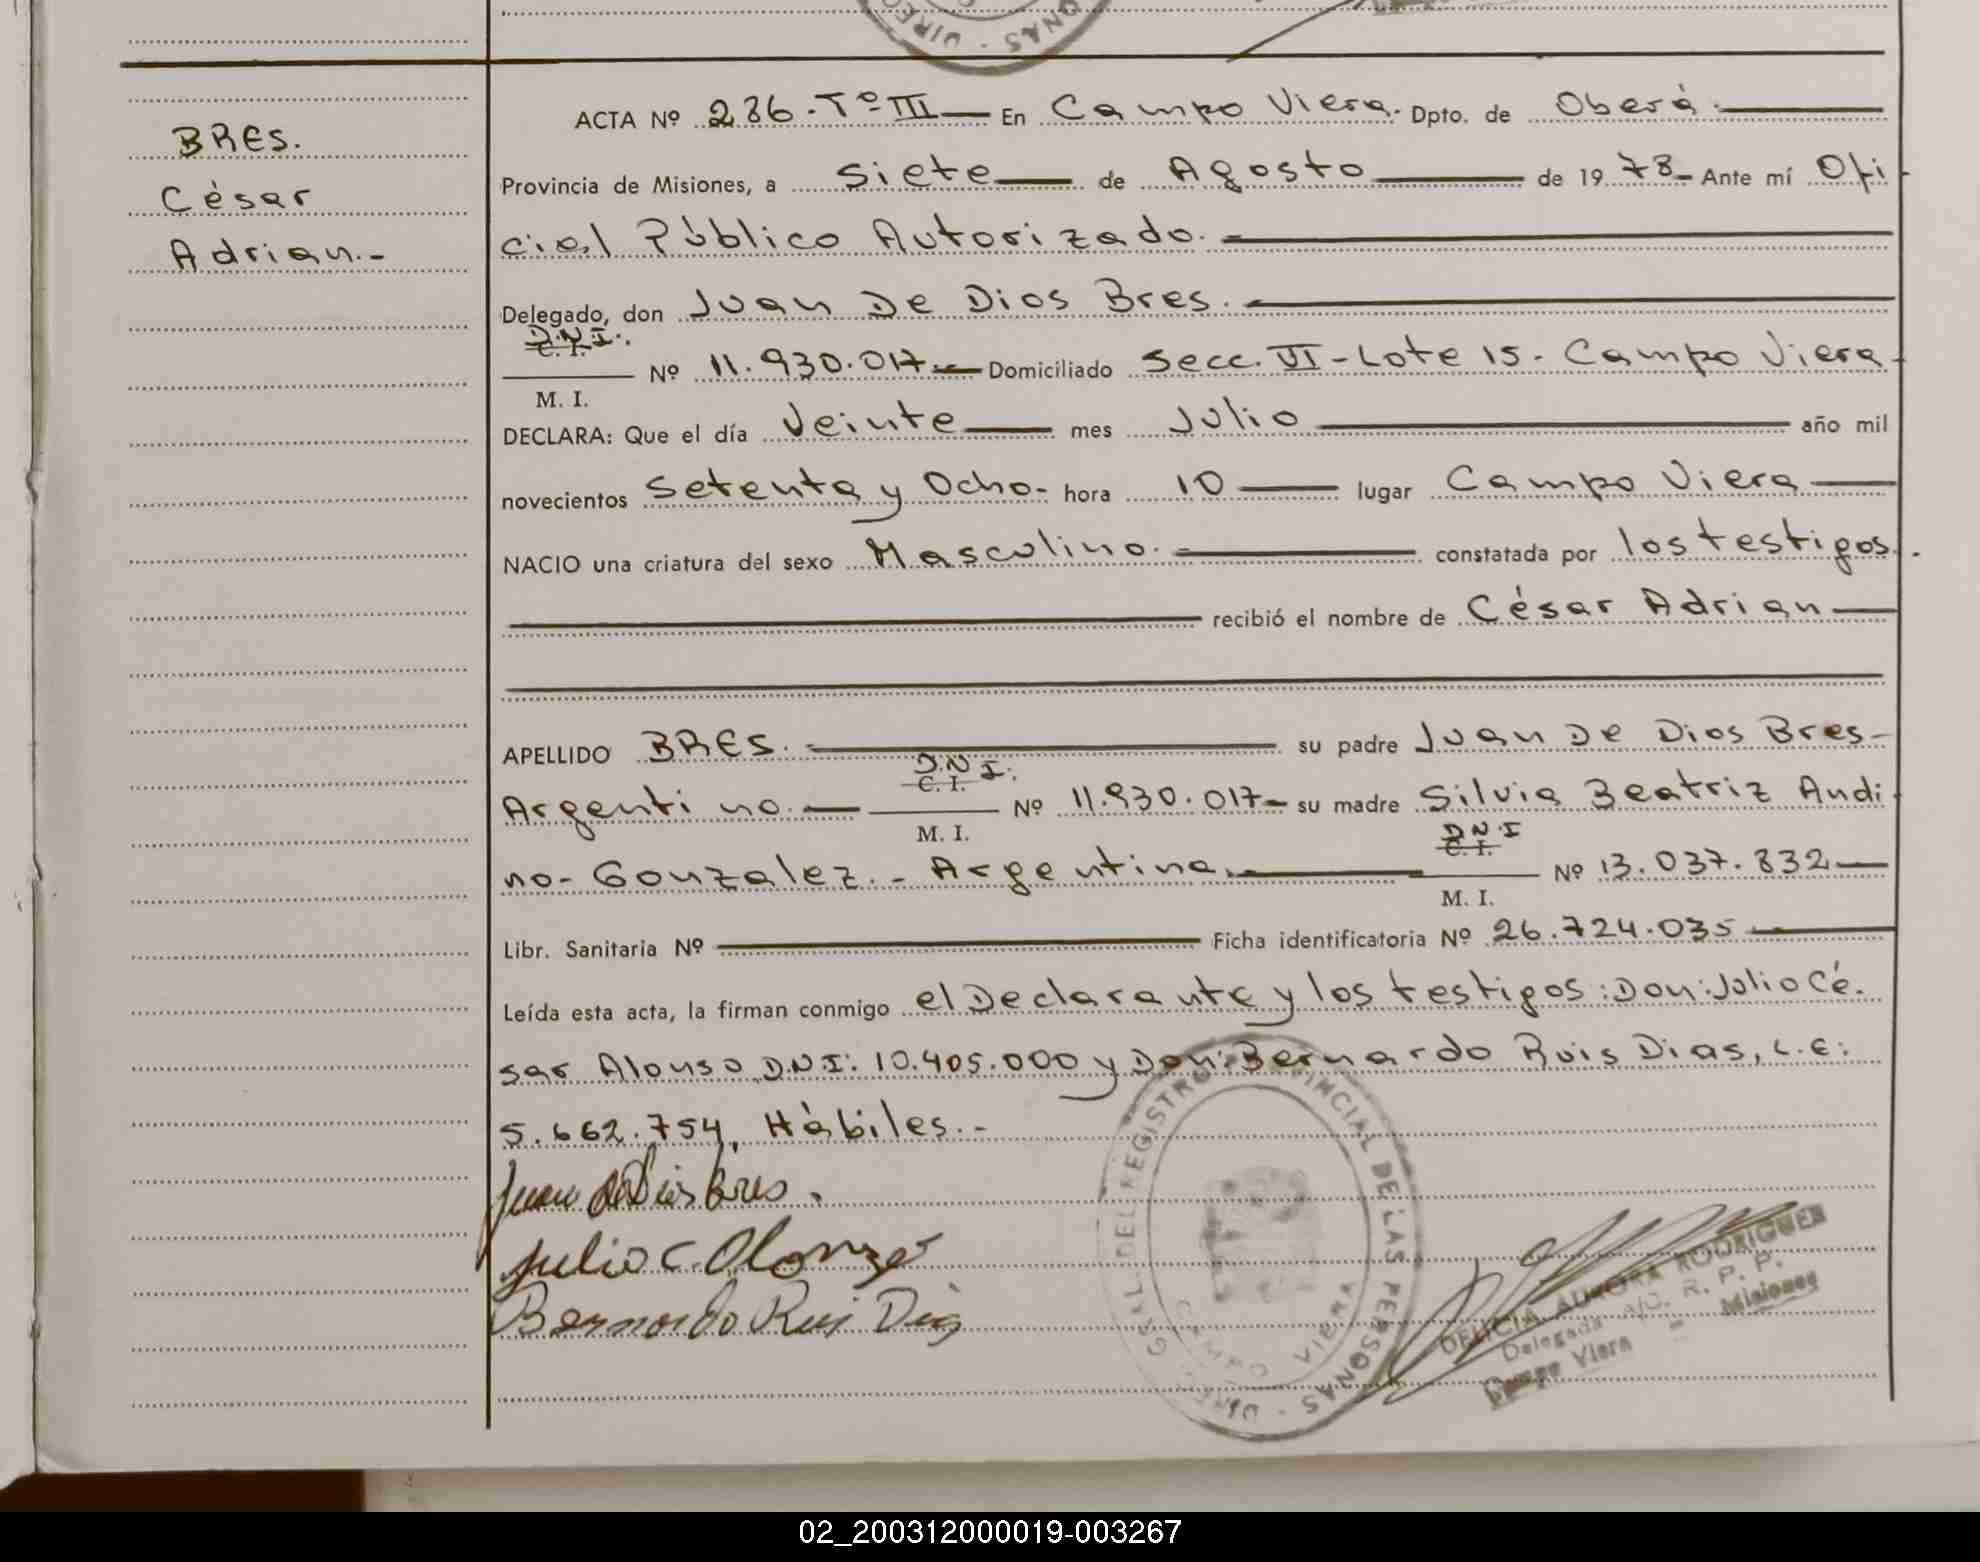 BRES.
César
Adrian.-
ACTA Nº 286-Tº III — En Campo Viera. Dpto. de Oberá.
Provincia de Misiones, a Siete — de Agosto — de 1978 — Ante mí Ofi
cial Público Autorizado.
Delegado, don Juan De Dios Bres.
D.N.I.
C. I.
M. I.
Nº 11.930.017 — Domiciliado Secc. VI - Lote 15. Campo Viera
DECLARA: Que el día Veinte — mes Julio — año mil
novecientos Setenta y Ocho - hora 10 — lugar Campo Viera —
NACIO una criatura del sexo Masculino. — constatada por los testigos.
recibió el nombre de César Adrian —
APELLIDO BRES. — su padre Juan De Dios Bres-
D.N.I.
C. I.
M. I.
Argentino. — Nº 11.930.017 — su madre Silvia Beatriz Andi
D.N.I
C. I.
M. I.
no - Gonzalez. - Argentina. — Nº 13.037.832 —
Libr. Sanitaria Nº — Ficha identificatoria Nº 26.724.035 —
Leída esta acta, la firman conmigo el Declarante y los testigos: Don: Julio Cé.
sar Alonso D.N.I: 10.405.000 y Don: Bernardo Ruis Dias, L.E:
5.662.754, Hàbiles.-
Juan de Dios Bres.
Julio C. Alonzo
Bernardo Rui Diaz
DIREC. GRAL. DEL REGISTRO PROVINCIAL DE LAS PERSONAS
CAMPO VIERA
DELICIA AURORA RODRIGUEZ
Delegada a/c. R. P. P.
Campo Viera - Misiones
02_200312000019-003267